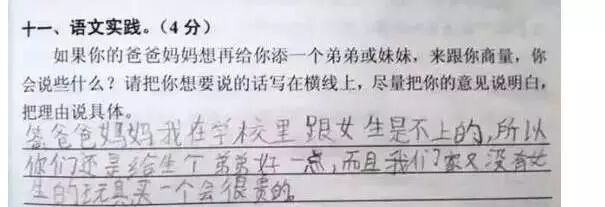 十一、语文实践。(4分)
如果你的爸爸妈妈想再给你添一个弟弟或妹妹，来跟你商量，你
会说些什么？请把你想要说的话写在横线上，尽量把你的意见说明白，
把理由说具体。
爸爸妈妈我在学校里跟女生是不上的,所以
你们还是给生个弟弟好一点,而且我们家又没有女
生的玩具买一个会很贵的。